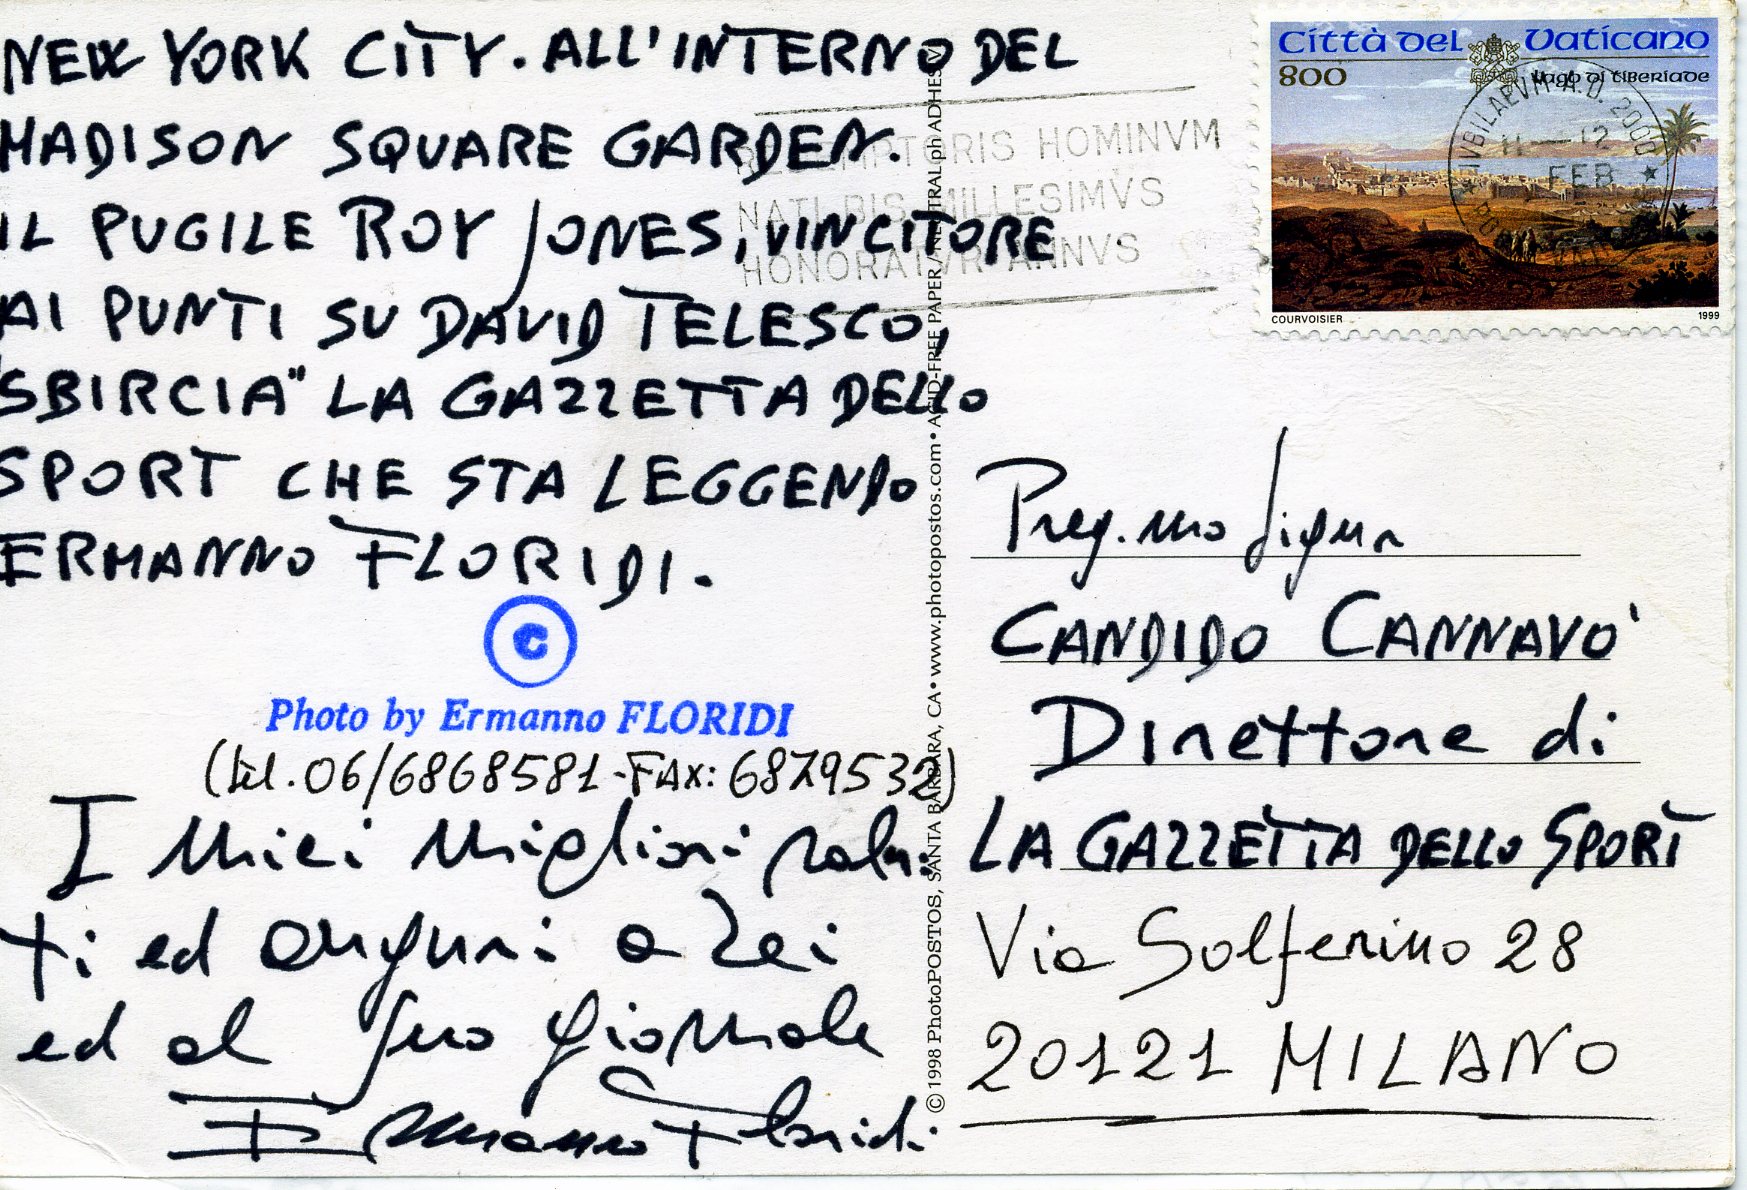 NEW YORK CITY. ALL'INTERNO DEL
MADISON SQUARE GARDEN.
IL PUGILE ROY JONES, VINCITORE
AI PUNTI SU DAVID TELESCO,
"SBIRCIA" LA GAZZETTA DELLO
SPORT CHE STA LEGGENDO
ERMANNO FLORIDI.
©
Photo by Ermanno FLORIDI
(tel. 06/6868581-FAX: 6879532)
I miei migliori salu-
ti ed auguri a Lei
ed al Suo giornale
Ermanno Floridi
© 1998 PhotoPOSTOS, SANTA BARBARA, CA • www.photopostos.com • ACID-FREE PAPER / NEUTRAL ph ADHESIV
REDEMPTORIS HOMINVM
NATI BIS MILLESIMVS
HONORATVR ANNVS
Città del Vaticano
800 Lago di Tiberiade
IVBILAEVM A.D. 2000
11 - 12
FEB
COURVOISIER 1999
Preg.mo Signor
CANDIDO CANNAVO'
Direttore di
LA GAZZETTA DELLO SPORT
Via Solferino 28
20121 MILANO